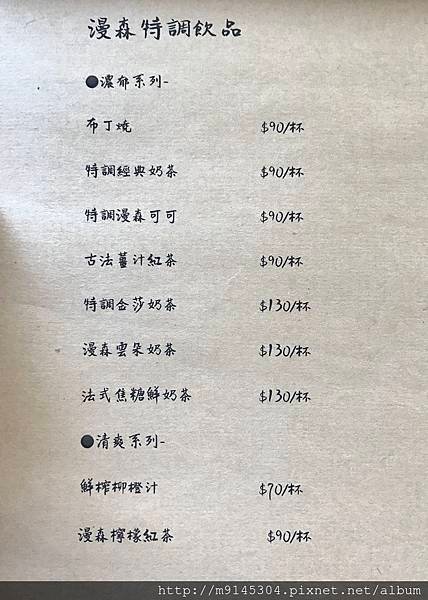 漫森特調飲品
●濃郁系列-
布丁燒 $90/杯
特調經典奶茶 $90/杯
特調漫森可可 $90/杯
古法薑汁紅茶 $90/杯
特調金莎奶茶 $130/杯
漫森雲朵奶茶 $130/杯
法式焦糖鮮奶茶 $130/杯
●清爽系列-
鮮榨柳橙汁 $70/杯
漫森檸檬紅茶 $90/杯
http://m9145304.pixnet.net/album